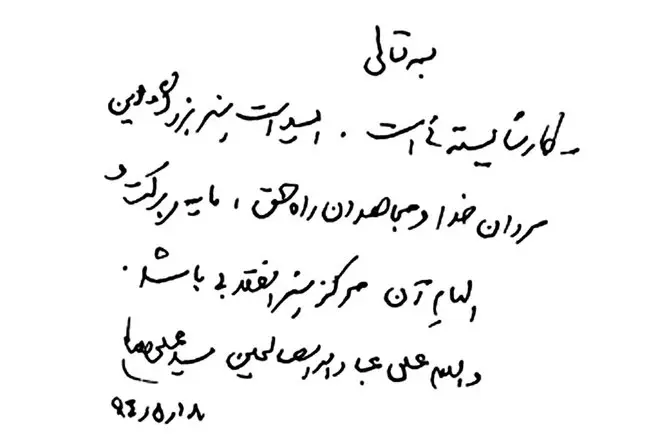 بسمه تعالی
- کار شایسته ئی است . امید است هنر بزرگ این
مردان خدا و مجاهدان راه حق ، مایه برکت و
الهام آن مرکز هنر انقلابی باشد .
والسلام علی عباد الله الصالحین سید علی خامنه‌ای